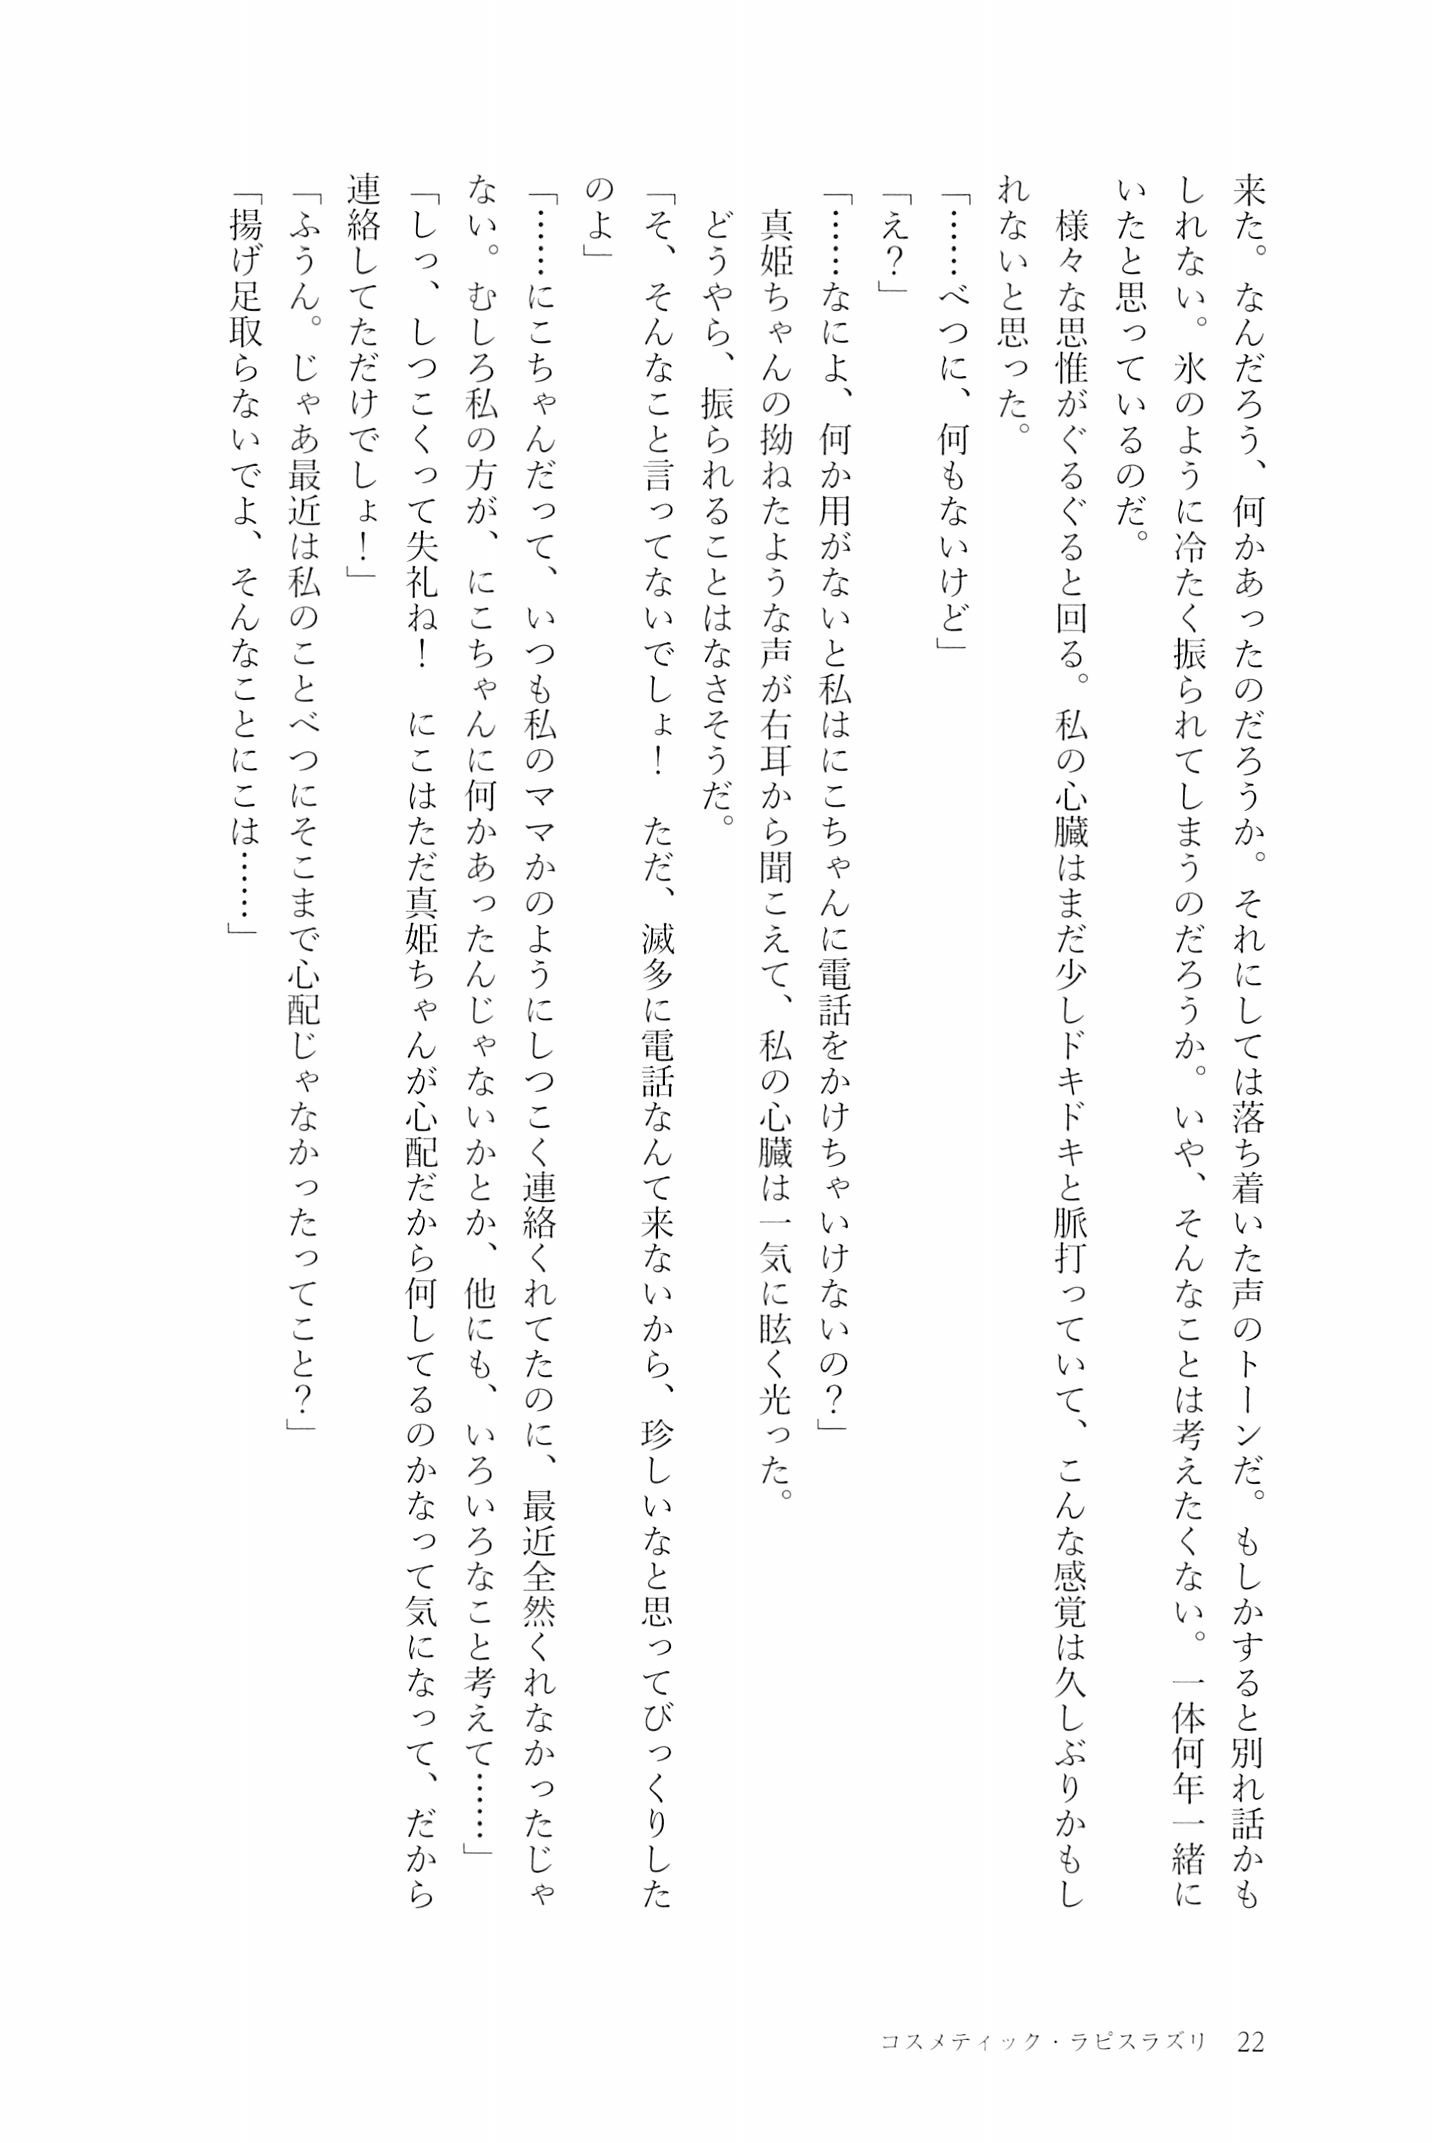 来た。なんだろう、何かあったのだろうか。それにしては落ち着いた声のトーンだ。もしかすると別れ話かも
しれない。氷のように冷たく振られてしまうのだろうか。いや、そんなことは考えたくない。一体何年一緒に
いたと思っているのだ。
　様々な思惟がぐるぐると回る。私の心臓はまだ少しドキドキと脈打っていて、こんな感覚は久しぶりかもし
れないと思った。
「……べつに、何もないけど」
「え？」
「……なによ、何か用がないと私はにこちゃんに電話をかけちゃいけないの？」
　真姫ちゃんの拗ねたような声が右耳から聞こえて、私の心臓は一気に眩く光った。
　どうやら、振られることはなさそうだ。
「そ、そんなこと言ってないでしょ！　ただ、滅多に電話なんて来ないから、珍しいなと思ってびっくりした
のよ」
「……にこちゃんだって、いつも私のママかのようにしつこく連絡くれてたのに、最近全然くれなかったじゃ
ない。むしろ私の方が、にこちゃんに何かあったんじゃないかとか、他にも、いろいろなこと考えて……」
「しっ、しつこくって失礼ね！　にこはただ真姫ちゃんが心配だから何してるのかなって気になって、だから
連絡してただけでしょ！」
「ふうん。じゃあ最近は私のことべつにそこまで心配じゃなかったってこと？」
「揚げ足取らないでよ、そんなことにこは……」
コスメティック・ラピスラズリ　22